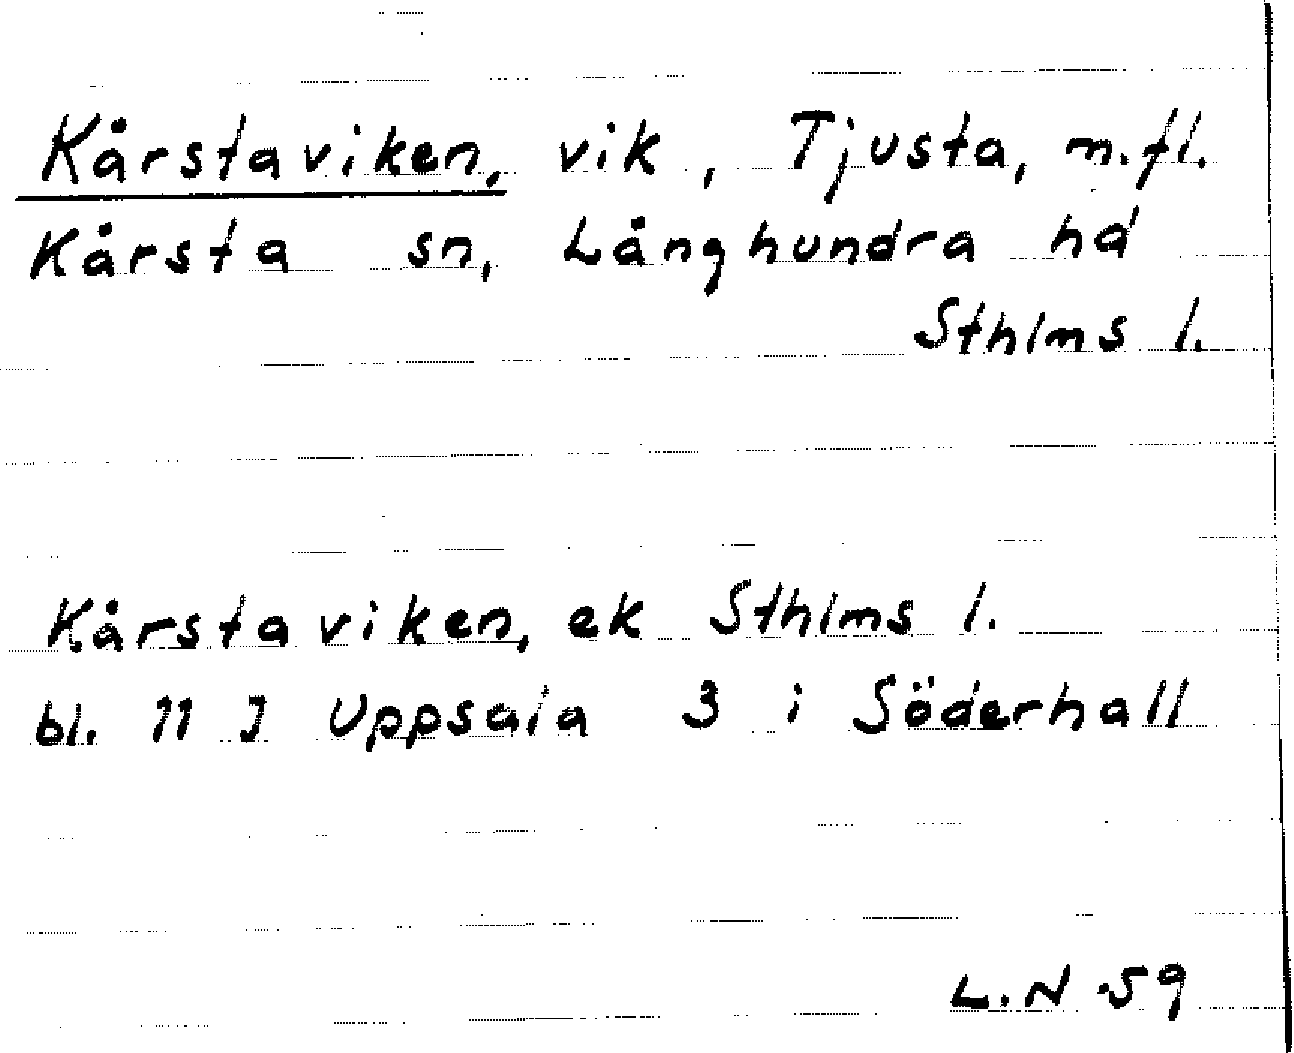 Kårstaviken, vik, Tjusta, m.fl.
Kårsta sn, Långhundra hd
Sthlms l.
Kårstaviken, ek Sthlms l.
bl. 11 J Uppsala 3 i Söderhall
L.N -59